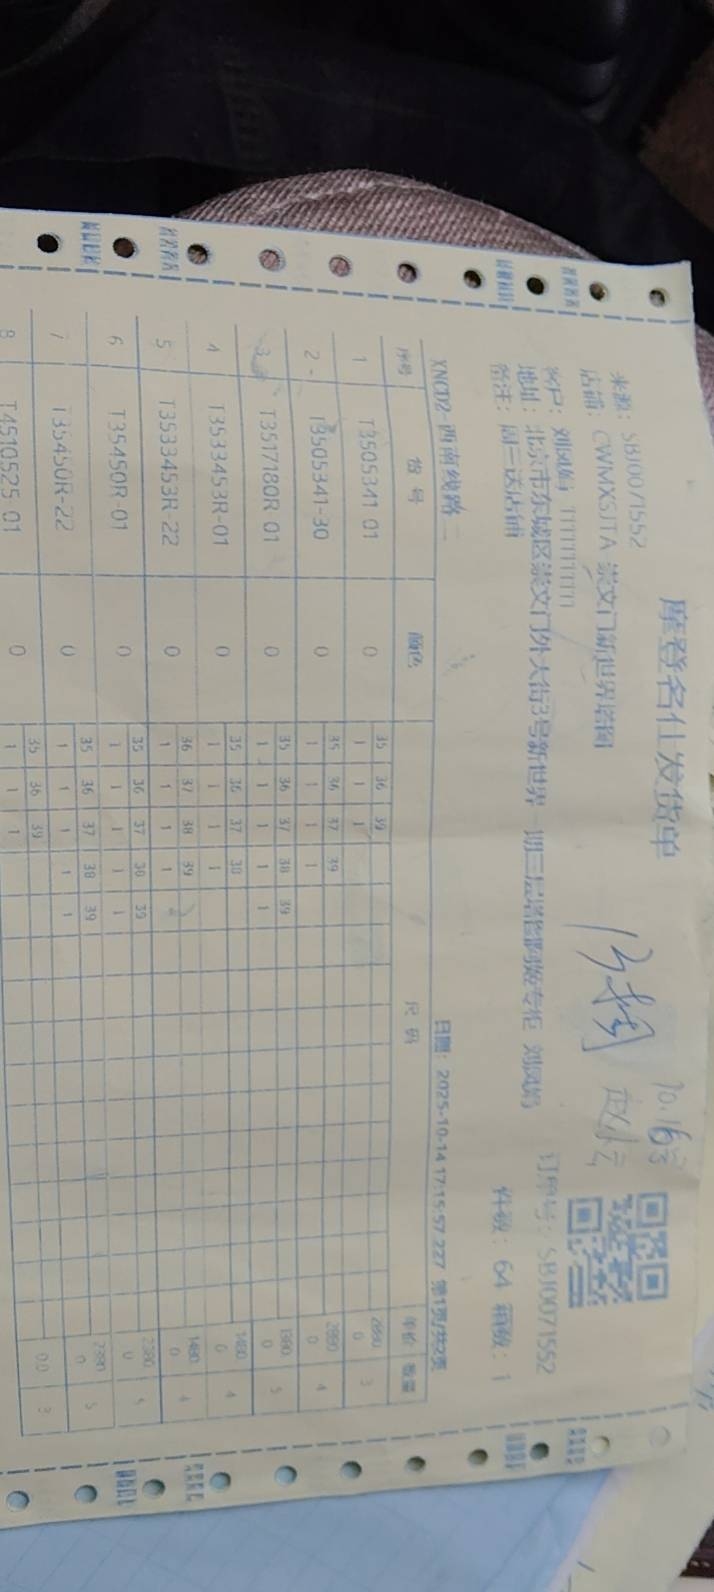 摩登名仕发货单
来源：SBJ0071552
店铺：CWMXSJTA 崇文门新世界塔阁
客户：
地址：北京市东城区崇文门外大街3号新世界一期三层塔阁阿版专柜
订单号：SBJ0071552
备注：周三送店铺
件数：64 箱数：1
XNCD2-西南线路
日期：2025-10-14 17:15:57.227 第1页/共2页
序号 货号 颜色 尺码 单价 数量
1 T3505341 01 0 35 36 39 2880 3
1 1 1 0
2 T3505341-30 0 35 36 37 39 2880 4
1 1 1 1 0
3 T3517180R 01 0 35 36 37 38 39 1380 5
1 1 1 1 1 0
4 T3533453R-01 0 35 36 37 38 1480 4
1 1 1 1 0
5 T3533453R-22 0 36 37 38 39 1480 4
1 1 1 1 0
6 T35450R-01 0 35 36 37 38 39 2380 5
1 1 1 1 1 0
7 T35450R-22 0 35 36 37 38 39 2380 5
1 1 1 1 1 0
8 T4510525 01 0 35 36 39 0.0 3
1 1 1